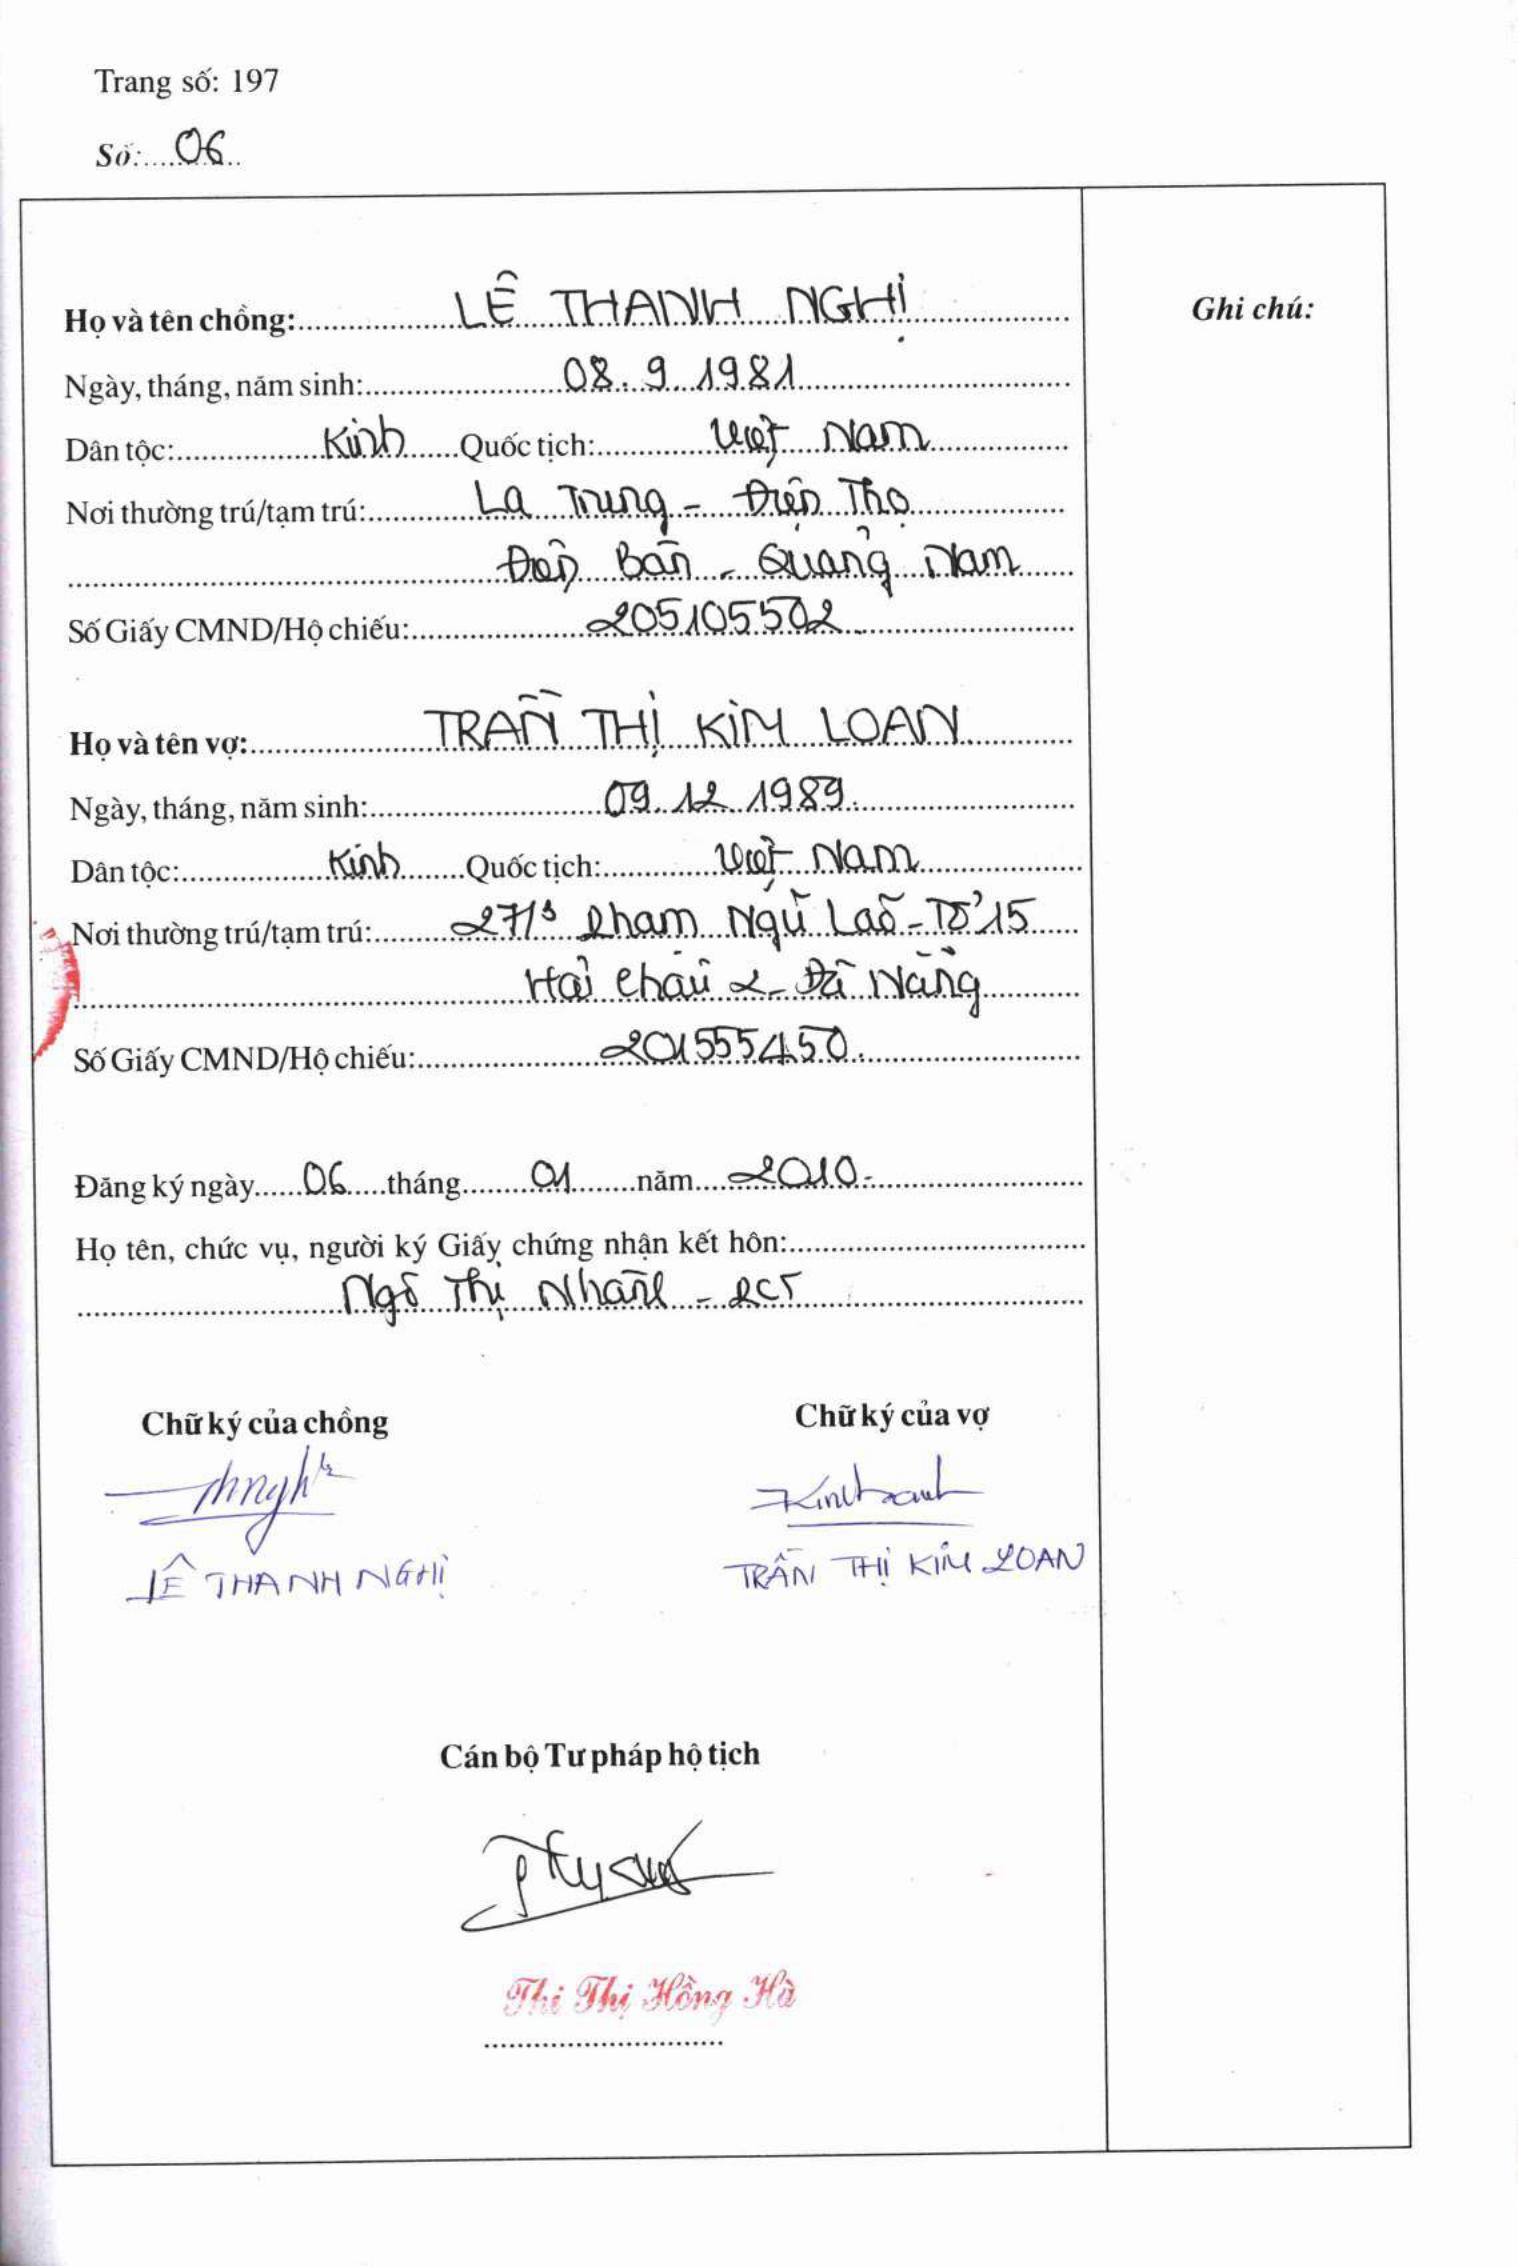 Trang số: 197
Số: 06
Ghi chú:
Họ và tên chồng: LÊ THANH NGHỊ
Ngày, tháng, năm sinh: 08.9.1981
Dân tộc: Kinh Quốc tịch: Việt Nam
Nơi thường trú/tạm trú: La Trung - Điện Thọ
Điện Bàn - Quảng Nam
Số Giấy CMND/Hộ chiếu: 205105502
Họ và tên vợ: TRẦN THỊ KIM LOAN
Ngày, tháng, năm sinh: 09.12.1989.
Dân tộc: Kinh Quốc tịch: Việt Nam
Nơi thường trú/tạm trú: 271/3 Phạm Ngũ Lão - Tổ 15
Hải Châu 2 - Đà Nẵng
Số Giấy CMND/Hộ chiếu: 201555450.
Đăng ký ngày 06 tháng 01 năm 2010.
Họ tên, chức vụ, người ký Giấy chứng nhận kết hôn:
Ngô Thị Nhanh - PCT
Chữ ký của chồng Chữ ký của vợ
LÊ THANH NGHỊ TRẦN THỊ KIM LOAN
Cán bộ Tư pháp hộ tịch
Thi Thị Hồng Hà